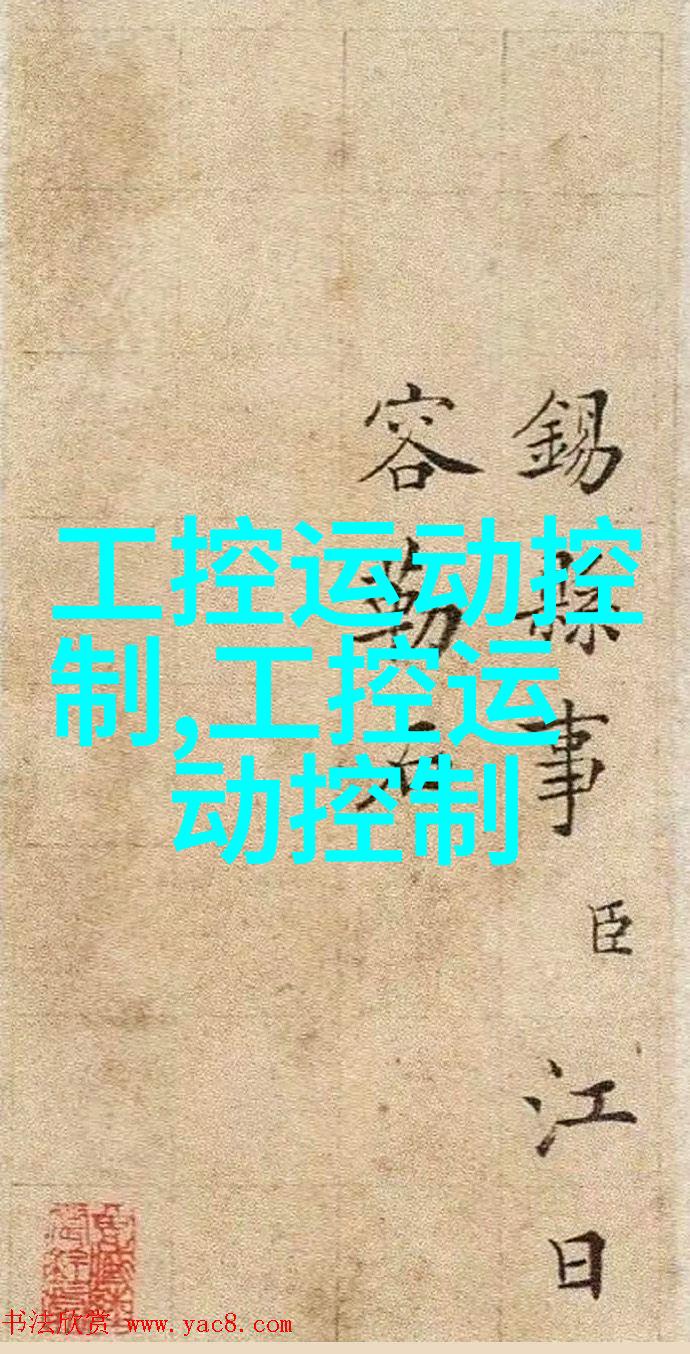 錫縣事臣江日
容勒石
工控运动控
制,工控运
动控制
书法欣赏 www.yac8.com